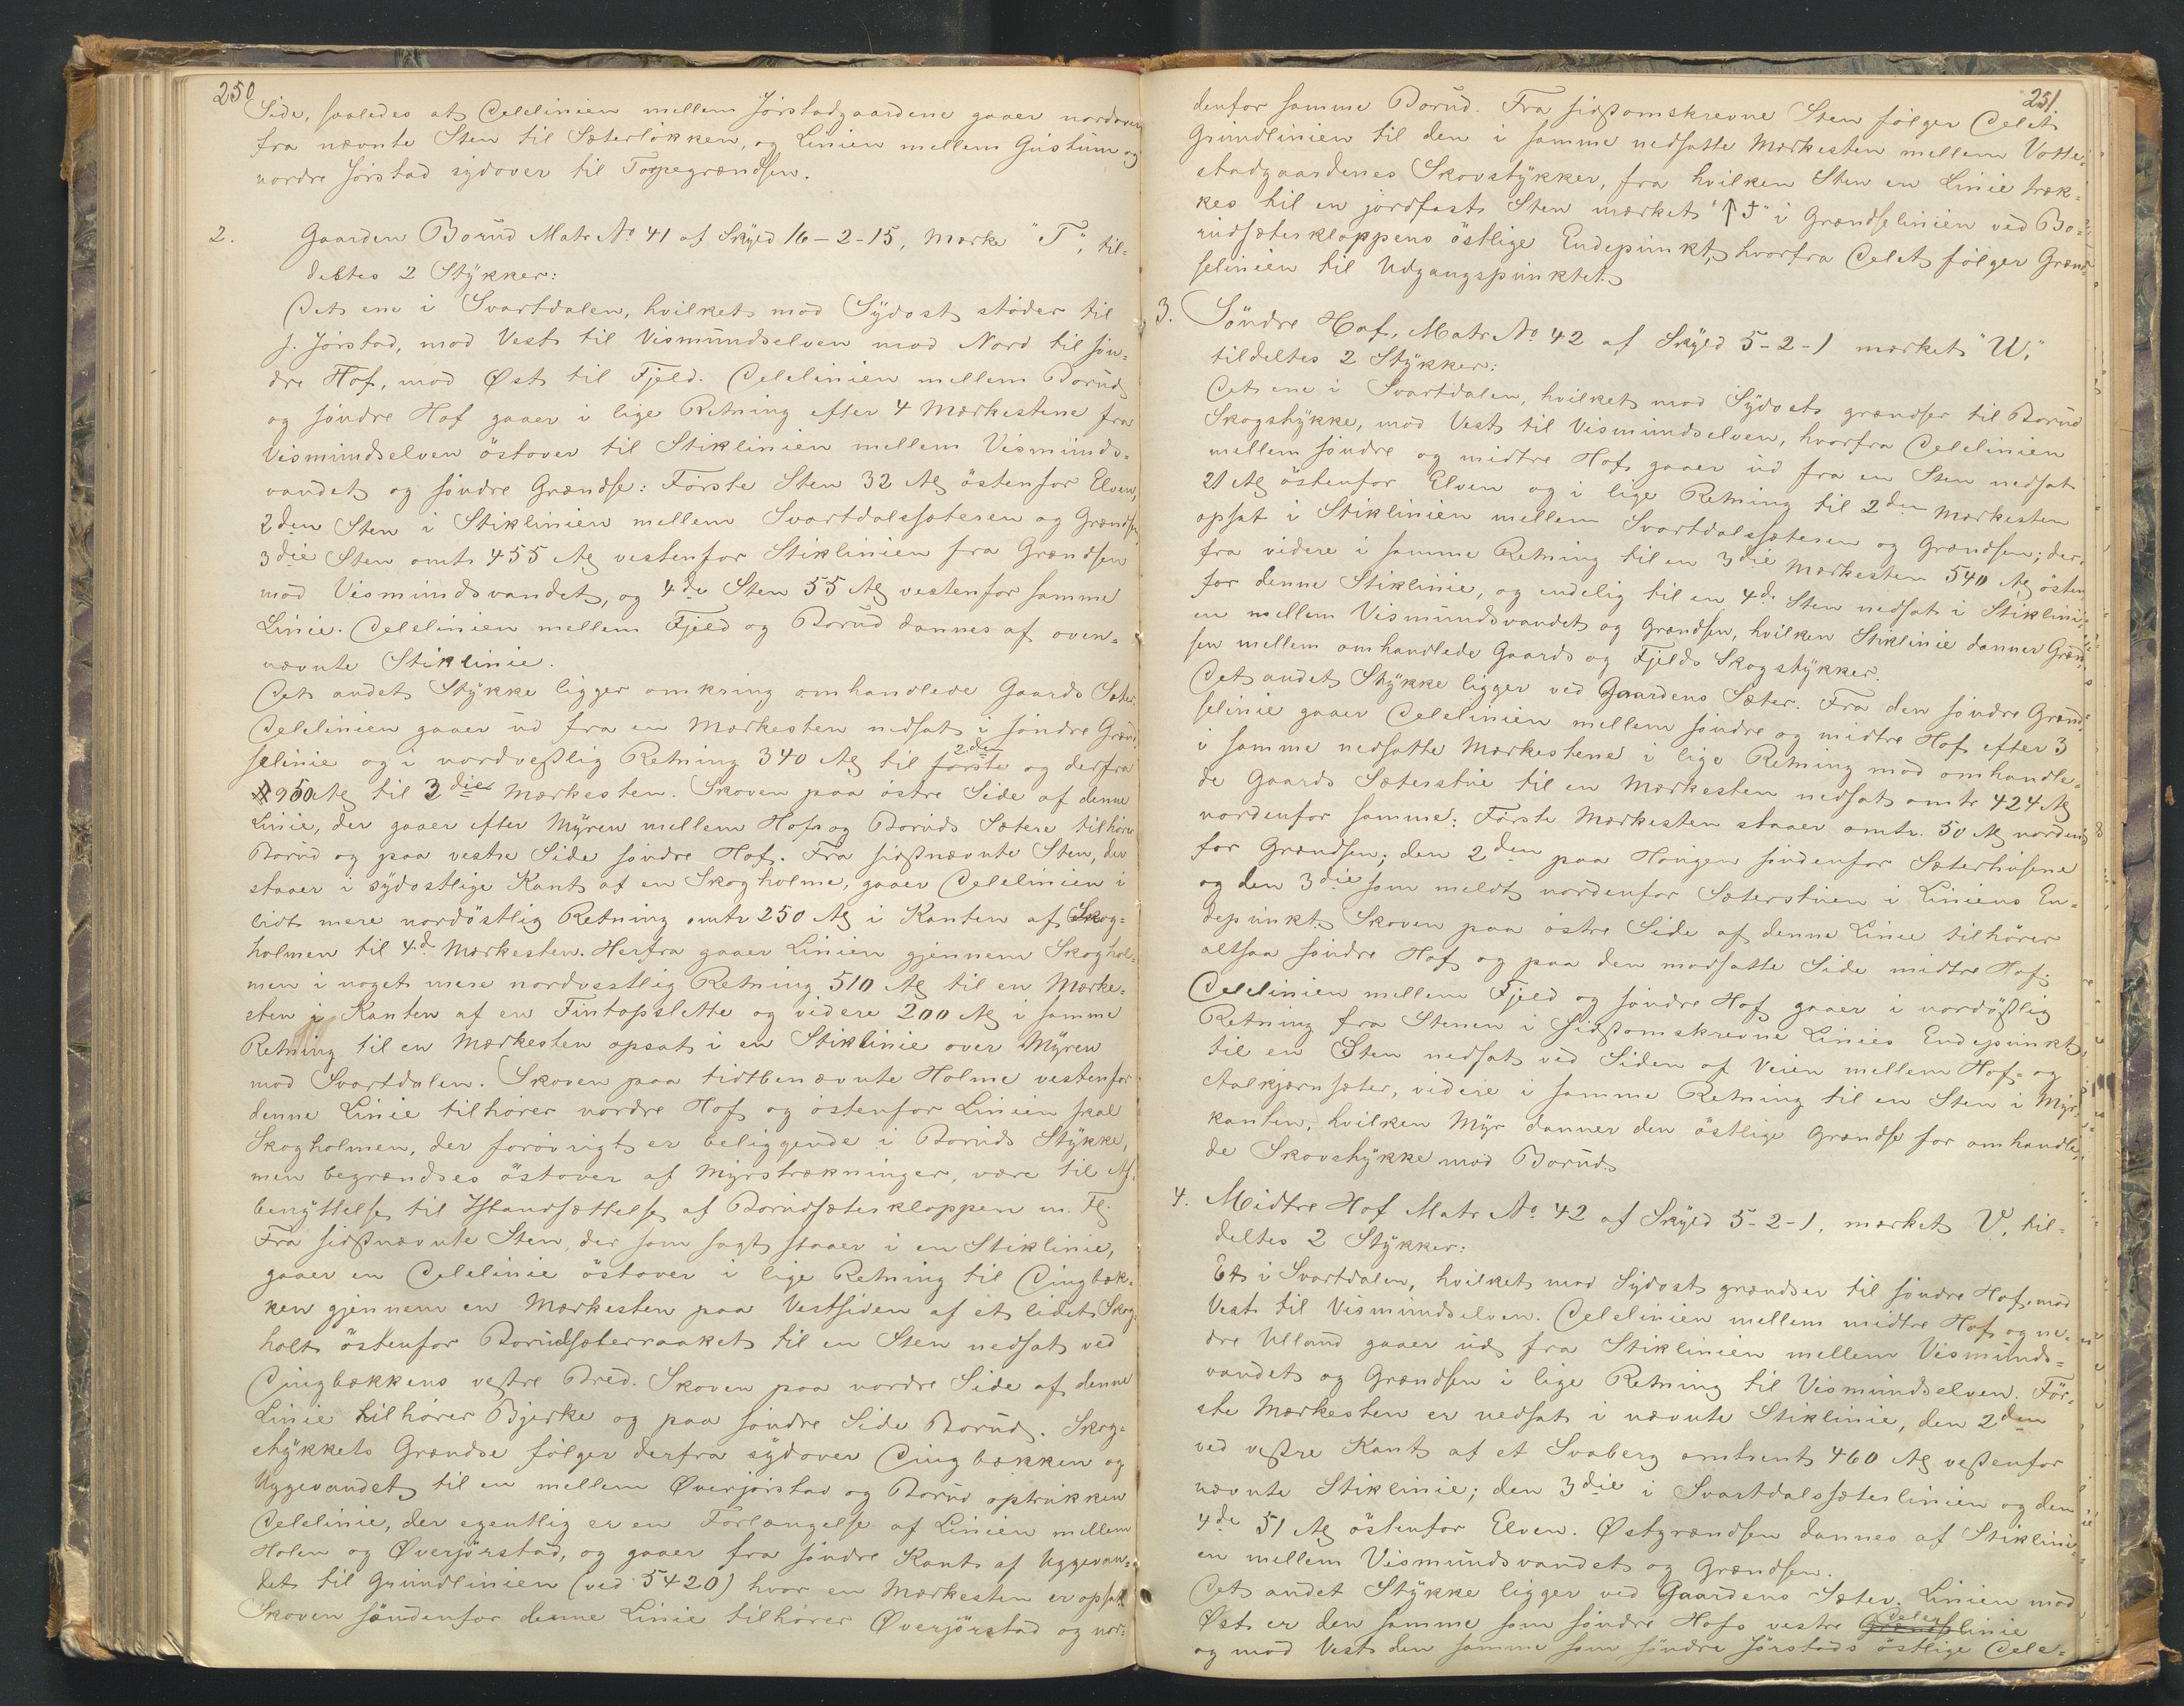 250
Side, saaledes at Delelinien mellem Jörstadgaardene gaaer nordover
fra nævnte Sten til Sæterlökken, og Linien mellem Gustum og
nordre Jörstad sydover til Torpegrændsen.
2. Gaarden Borud Matr No 41 af Skyld 16-2-15, Mærke "T", til-
deltes 2 Stykker:
Det ene i Svartdalen, hvilket mod Sydost stöder til
s. Jörstad, mod Vest til Vismundselven mod Nord til søn-
dre Hof, mod Øst til Fjeld. Delelinien mellem Borud
og søndre Hof gaaer i lige Retning efter 4 Mærkestene fra
Vismundselven östover til Stiklinien mellem Vismunds-
vandet og søndre Grændse: Förste Sten 32 Al östenfor Elven,
2den Sten i Stiklinien mellem Svartdalssæteren og Grændsen
3die Sten omtr 455 Al vestenfor Stiklinien fra Grændsen
mod Vismundsvandet, og 4de Sten 55 Al vestenfor samme
Linie. Delelinien mellem Fjeld og Borud dannes af oven-
nævnte Stiklinie.
Det andet Stykke ligger omkring omhandlede Gaards Sæter.
Delelinien gaaer ud fra en Mærkesten nedsat i søndre Grænd-
selinie og i nordvestlig Retning 340 Al til förste 2den og derfra
950 Al til 3die Mærkesten. Skoven paa östre Side af denne
Linie, der gaaer efter Myren mellem Hofs og Boruds Sætere tilhörer
Borud og paa vestre Side søndre Hof. Fra sidstnævnte Sten, der
staaer i sydostlige Kant af en Skogholme, gaaer Delelinien i
lidt mere nordöstlig Retning omtr 250 Al i Kanten af Skog-
holmen til 4de Mærkesten. Herfra gaaer Linien gjennem Skoghol-
men i noget mere nordvestlig Retning 510 Al til en Mærke-
sten i Kanten af en Fintopslette og videre 200 Al i samme
Retning til en Mærkesten opsat i en Stiklinie over Myren
mod Svartdalen. Skoven paa tidtbenævnte Holme vestenfor
denne Linie tilhörer nordre Hof og östenfor Linien skal
Skogholmen, der forövrigt er beliggende i Boruds Stykke,
men begrændses östover af Myrstrækninger, være til Af-
benyttelse til Istandsættelse af Borudsæterkloppen m. Fl.
Fra sidstnævnte Sten, der som sagt staaer i en Stiklinie,
gaaer en Delelinie östover i lige Retning til Dingbæk-
ken gjennem en Mærkesten paa Vestsiden af et lidet Skog-
holt östenfor Borudsæterraaket til en Sten nedsat ved
Dingbækkens vestre Bred. Skoven paa nordre Side af denne
Linie tilhörer Bjerke og paa søndre Side Borud. Skog-
stykkets Grændse fölger derfra sydover Dingbækken og
Uggevandet til en mellem Øverjörstad og Borud optrukken
Delelinie, der egentlig er en Forlængelse af Linien mellem
Holen og Øverjörstad, og gaaer fra søndre Kant af Uggevan-
det til Grundlinien (ved 5420) hvor en Mærkesten er opsat
Skoven søndenfor denne Linie tilhörer Øverjörstad og nor-
251.
denfor samme Borud. Fra sidstomskrevne Sten fölger Delet
Grundlinien til den i samme nedsatte Mærkesten mellem Votte-
stadgaardenes Skovstykker, fra hvilken Sten en Linie træk-
kes til en jordfast Sten mærket "↑ J" i Grændselinien ved Bo-
rudsæterkloppens östlige Endepunkt, hvorfra Delet fölger Grænd-
selinien til Udgangspunktet.
3. Söndre Hof, Matr No 42 af Skyld 5-2-1 mærket "U,"
tildeltes 2 Stykker:
Det ene i Svartdalen, hvilket mod Sydost grændser til Borud
Skogstykke, mod Vest til Vismundselven, hvorfra Delelinien
mellem søndre og midtre Hof gaaer ud fra en Sten nedsat
21 Al östenfor Elven og i lige Retning til 2den Mærkesten
opsat i Stiklinien mellem Svartdalssæteren og Grændsen; der-
fra videre i samme Retning til en 3die Mærkesten 540 Al östen
for denne Stiklinie, og endelig til en 4de Sten nedsat i Stiklini-
en mellem Vismundsvandet og Grændsen, hvilken Stiklinie danner Grænd-
sen mellem omhandlede Gaards og Fjelds Skogstykker.
Det andet Stykke ligger ved Gaardens Sæter. Fra den søndre Grænd-
selinie gaaer Delelinien mellem søndre og midtre Hof efter 3
i samme nedsatte Mærkestene i lige Retning mod omhandle-
de Gaards Sæterstue til en Mærkesten nedsat omtr 424 Al
nordenfor samme: Förste Mærkesten staaer omtr. 50 Al norden-
for Grændsen; den 2den paa Haugen søndenfor Sæterhusene
og den 3die som meldt nordenfor Sæterstuen i Liniens En-
depunkt. Skoven paa östre Side af denne Linie tilhörer
altsaa søndre Hof og paa den modsatte Side midtre Hof.
Delelinien mellem Fjeld og søndre Hof gaaer i nordöstlig
Retning fra Stenen i sidstomskrevne Linies Endepunkt
til en Sten nedsat ved Siden af Veien mellem Hof- og
Aalkjærnsæter, videre i samme Retning til en Sten i Myr-
kanten, hvilken Myr danner den östlige Grændse for omhandle-
de Skovstykke mod Borud.
4. Midtre Hof Matr No 42 af Skyld 5-2-1. mærket V, til-
deltes 2 Stykker:
Et i Svartdalen, hvilket mod Sydost grændser til søndre Hof, mod
Vest til Vismundselven. Delelinien mellem midtre Hof og ne-
dre Ulland gaaer ud fra Stiklinien mellem Vismunds-
vandet og Grændsen i lige Retning til Vismundselven. För-
ste Mærkesten er nedsat i nævnte Stiklinie, den 2den
ved vestre Kant af et Svaberg omtrent 460 Al vestenfor
nævnte Stiklinie; den 3die i Svartdalssæterlinien og den
4de 51 Al östenfor Elven. Østgrændsen dannes af Stiklini-
en mellem Vismundsvandet og Grændsen.
Det andet Stykke ligger ved Gaardens Sæter. Linien mod
Øst er den samme som søndre Hofs vestre Delelinie
og mod Vest den samme som søndre Jörstads östlige Dele-